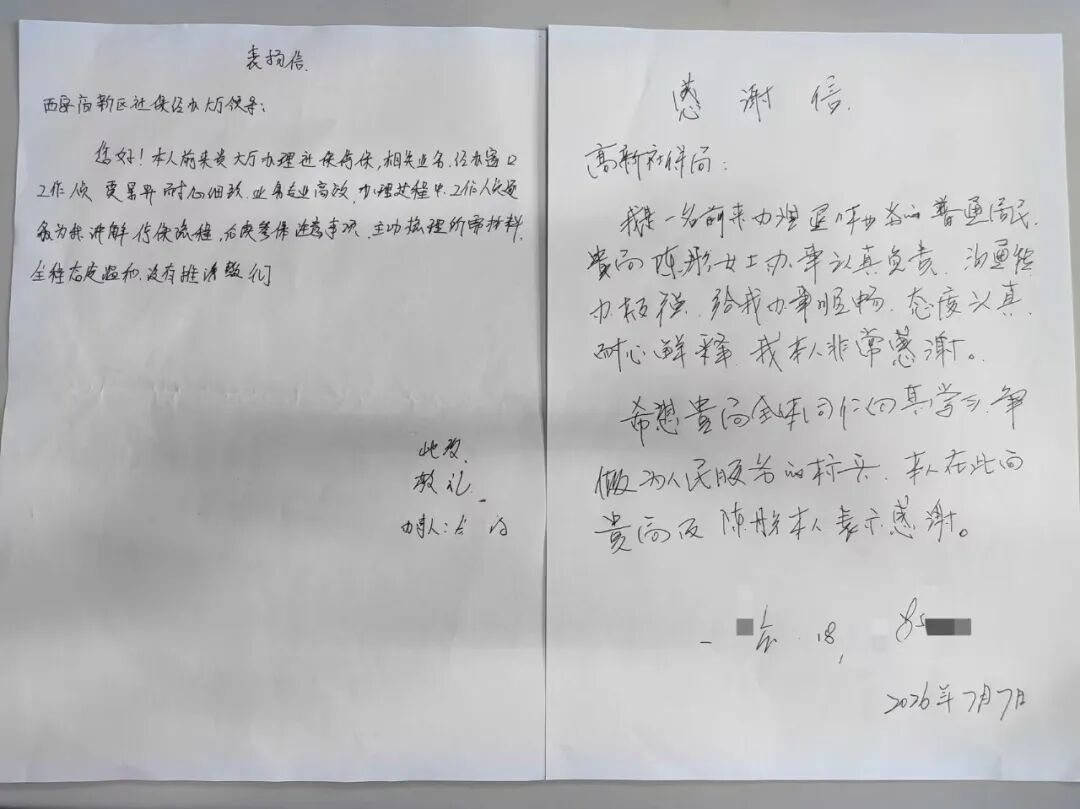 表扬信
西安高新区社保经办大厅领导：
您好！本人前来贵大厅办理社保停保，相关业务，经办窗口
工作人员 耐心细致，业务专业高效，办理过程中，工作人员
为我讲解停保流程，后续参保注意事项，主动梳理所需材料，
全程态度温和，没有推诿敷衍
此致
敬礼
办事人：
感谢信
高新社保局：
我是一名前来办理退休业务的普通居民，
贵局陈彤女士办事认真负责，沟通能
力极强，给我办事顺畅，态度认真，
耐心解释，我本人非常感谢。
希想贵局全体同仁认真学习，争
做为人民服务的标兵，本人在此向
贵局及陈彤本人表示感谢。
18
2026年7月7日